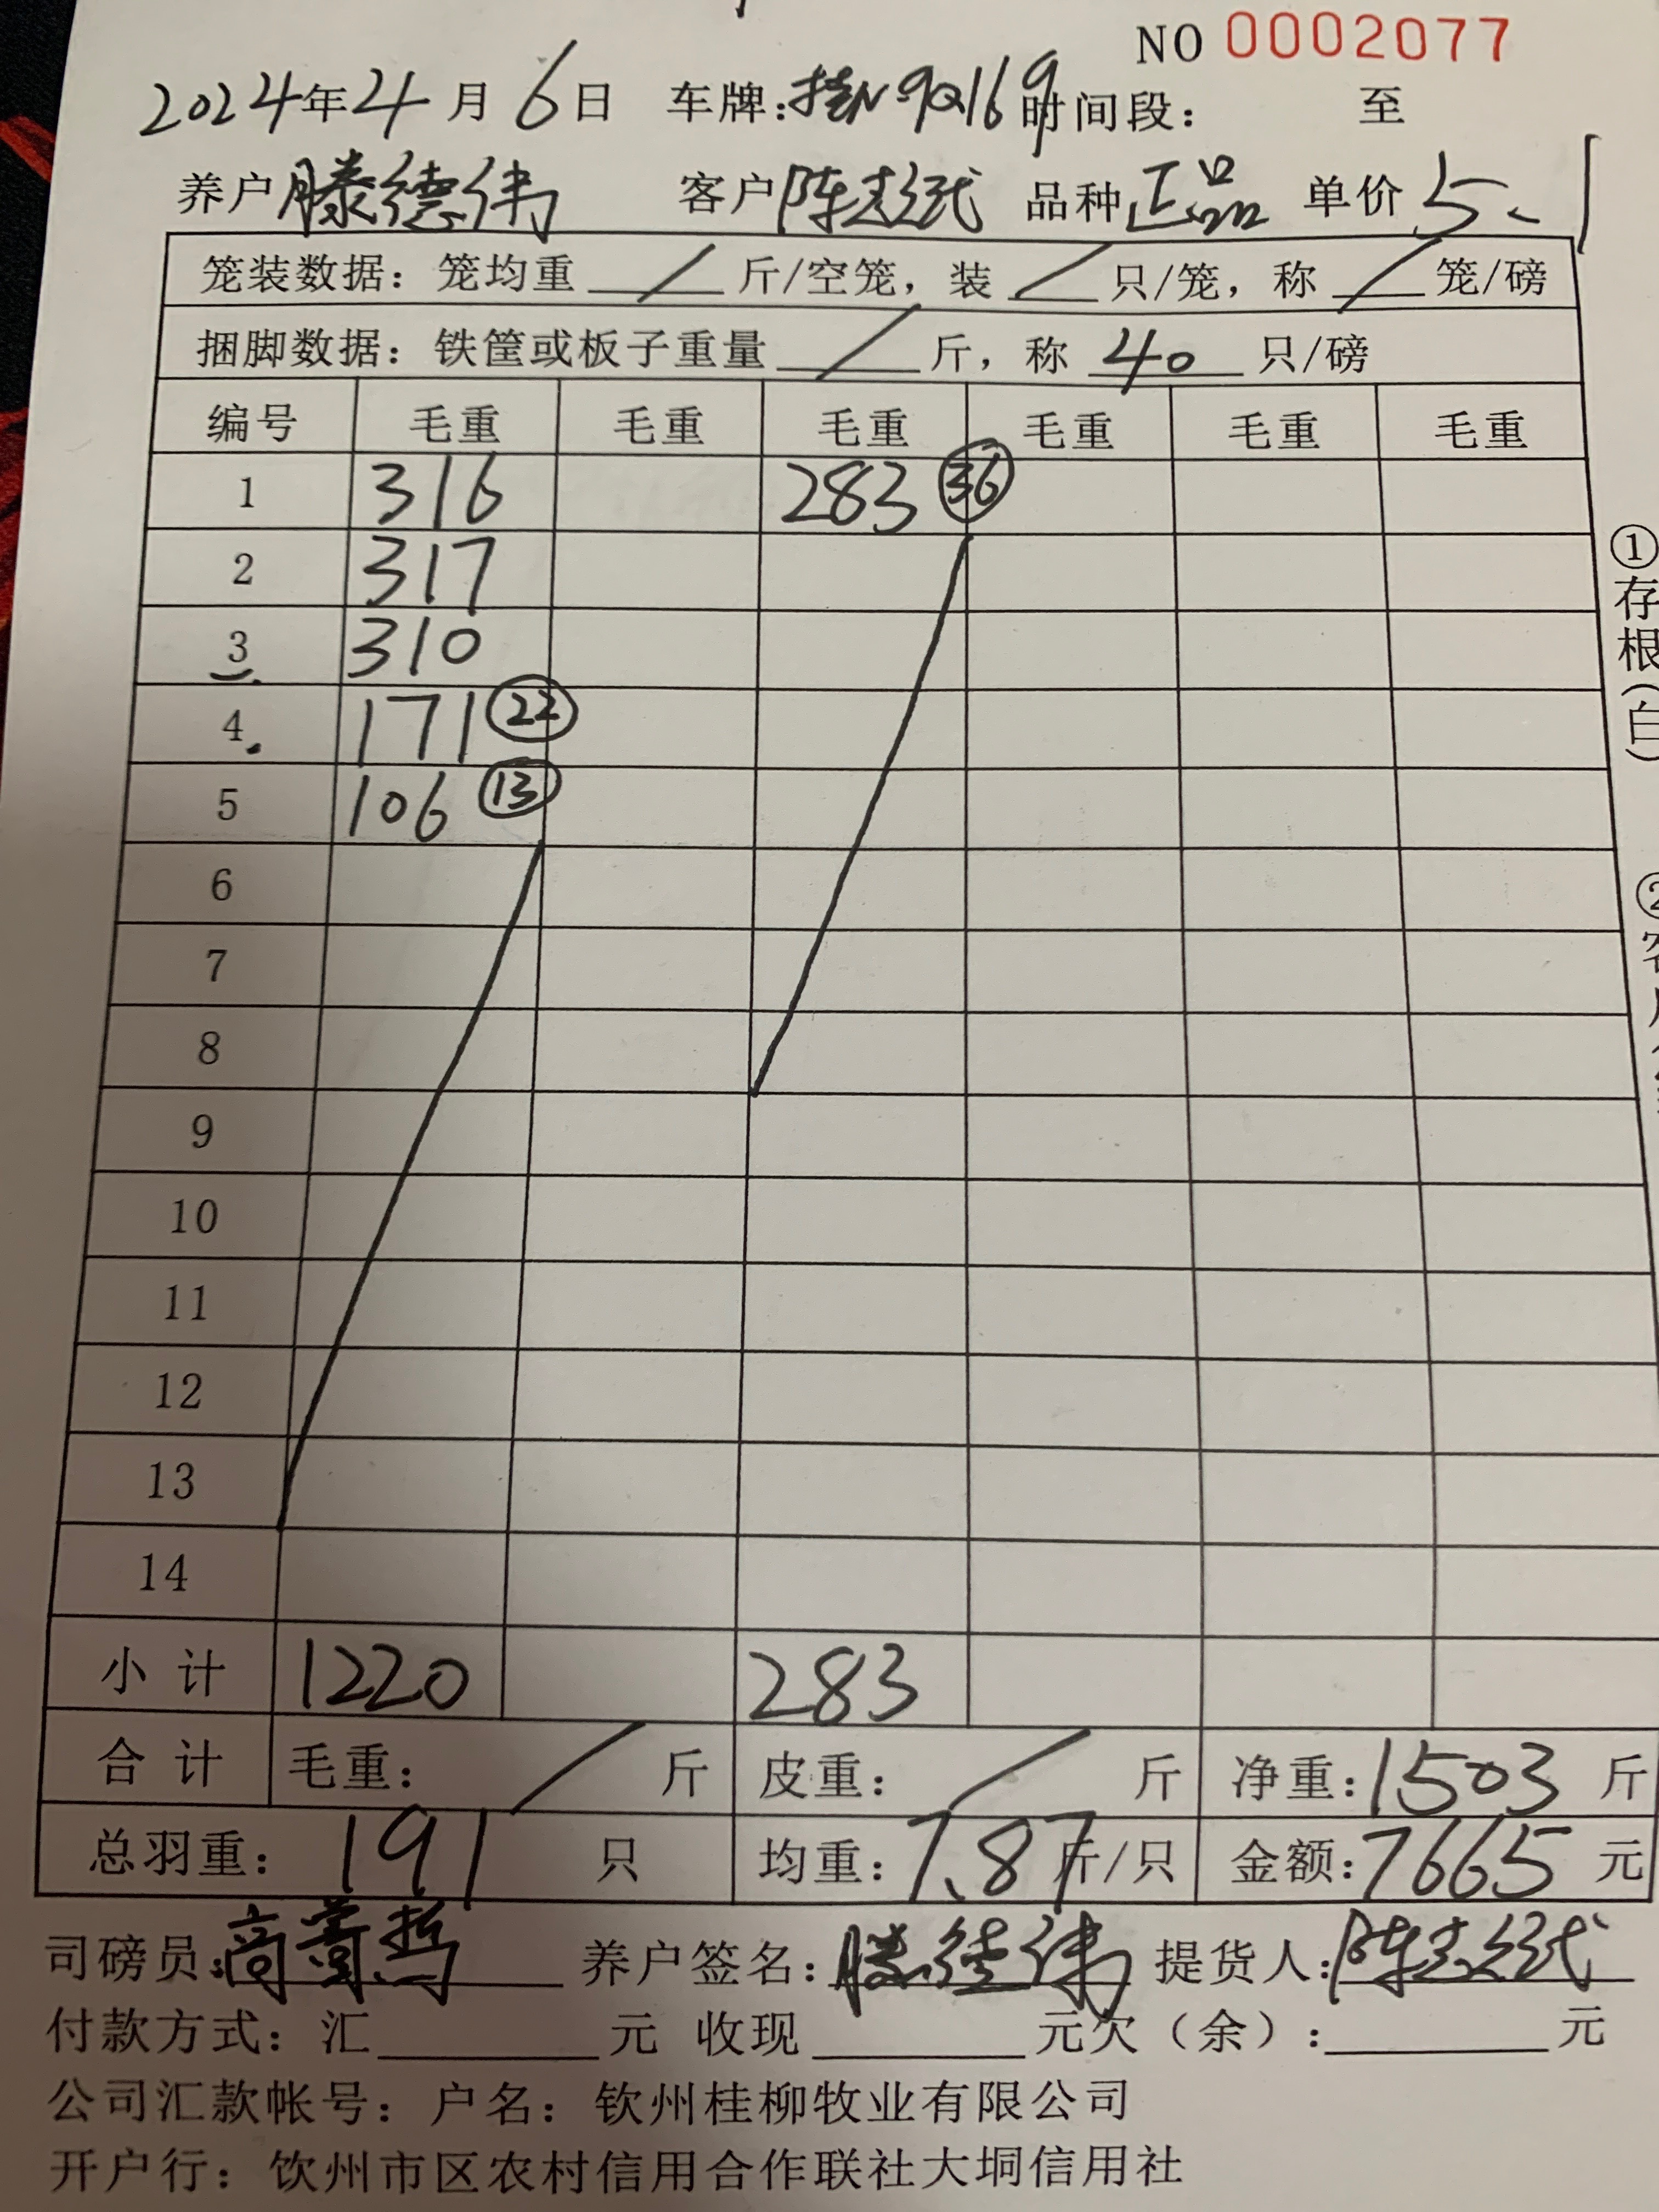 NO 0002077
2024年4月6日 车牌:桂N·9Q169 时间段: 至
养户 滕德伟 客户 陈志斌 品种 正品 单价 5.1
笼装数据: 笼均重 / 斤/空笼, 装 / 只/笼, 称 / 笼/磅
捆脚数据: 铁筐或板子重量 / 斤, 称 40 只/磅
编号 毛重 毛重 毛重 毛重 毛重 毛重
1 316 283 ㊱
2 317
3 310
4 171 ㉒
5 106 ⑬
6
7
8
9
10
11
12
13
14
小计 1220 283
合计 毛重: / 斤 皮重: / 斤 净重: 1503 斤
总羽重: 191 只 均重: 7.87 斤/只 金额: 7665 元
司磅员: 养户签名: 滕德伟 提货人: 陈志斌
付款方式: 汇 元 收现 元欠(余): 元
公司汇款帐号: 户名: 钦州桂柳牧业有限公司
开户行: 钦州市区农村信用合作联社大垌信用社
①存根(白)
②客户